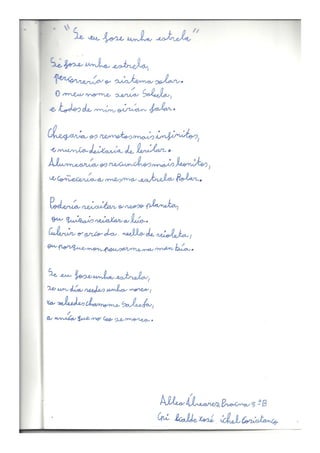 "Se eu fose unha estrela"
Se fose unha estrela,
percorrería o sistema solar.
O meu nome sería Salela,
e todos de min oirían falar.
Chegaría os remotos mais infinitos,
e nunca deixaría de brillar.
Alumearía os recunchos mais bonitos,
e coñecería a mesma estrela Polar.
Podería visitar o noso planeta,
ou quizais visitar a lúa.
Cubrir o arco da vella de violeta,
ou porque non pousarme na man túa.
Se eu fose unha estrela,
se un día vedes unha nova,
xa sabedes chamome Salela,
a única que no ceo se mova.
Alba Álvarez 3ºB
Cpi Alcalde Xosé Pichel Coristanco